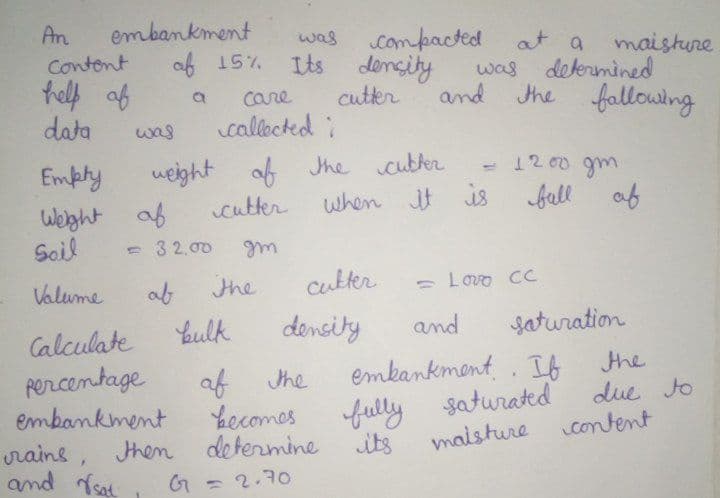 An embankment was compacted at a moisture
content of 15% Its density was determined
help of a core cutter and the following
data was collected ;
Empty weight of the cutter = 1200 gm
Weight of cutter when it is full of
Soil = 3200 gm
Volume of the cutter = 1000 CC
Calculate bulk density and saturation
percentage of the embankment. If the
embankment becomes fully saturated due to
rains, then determine its moisture content
and γsat, G = 2.70